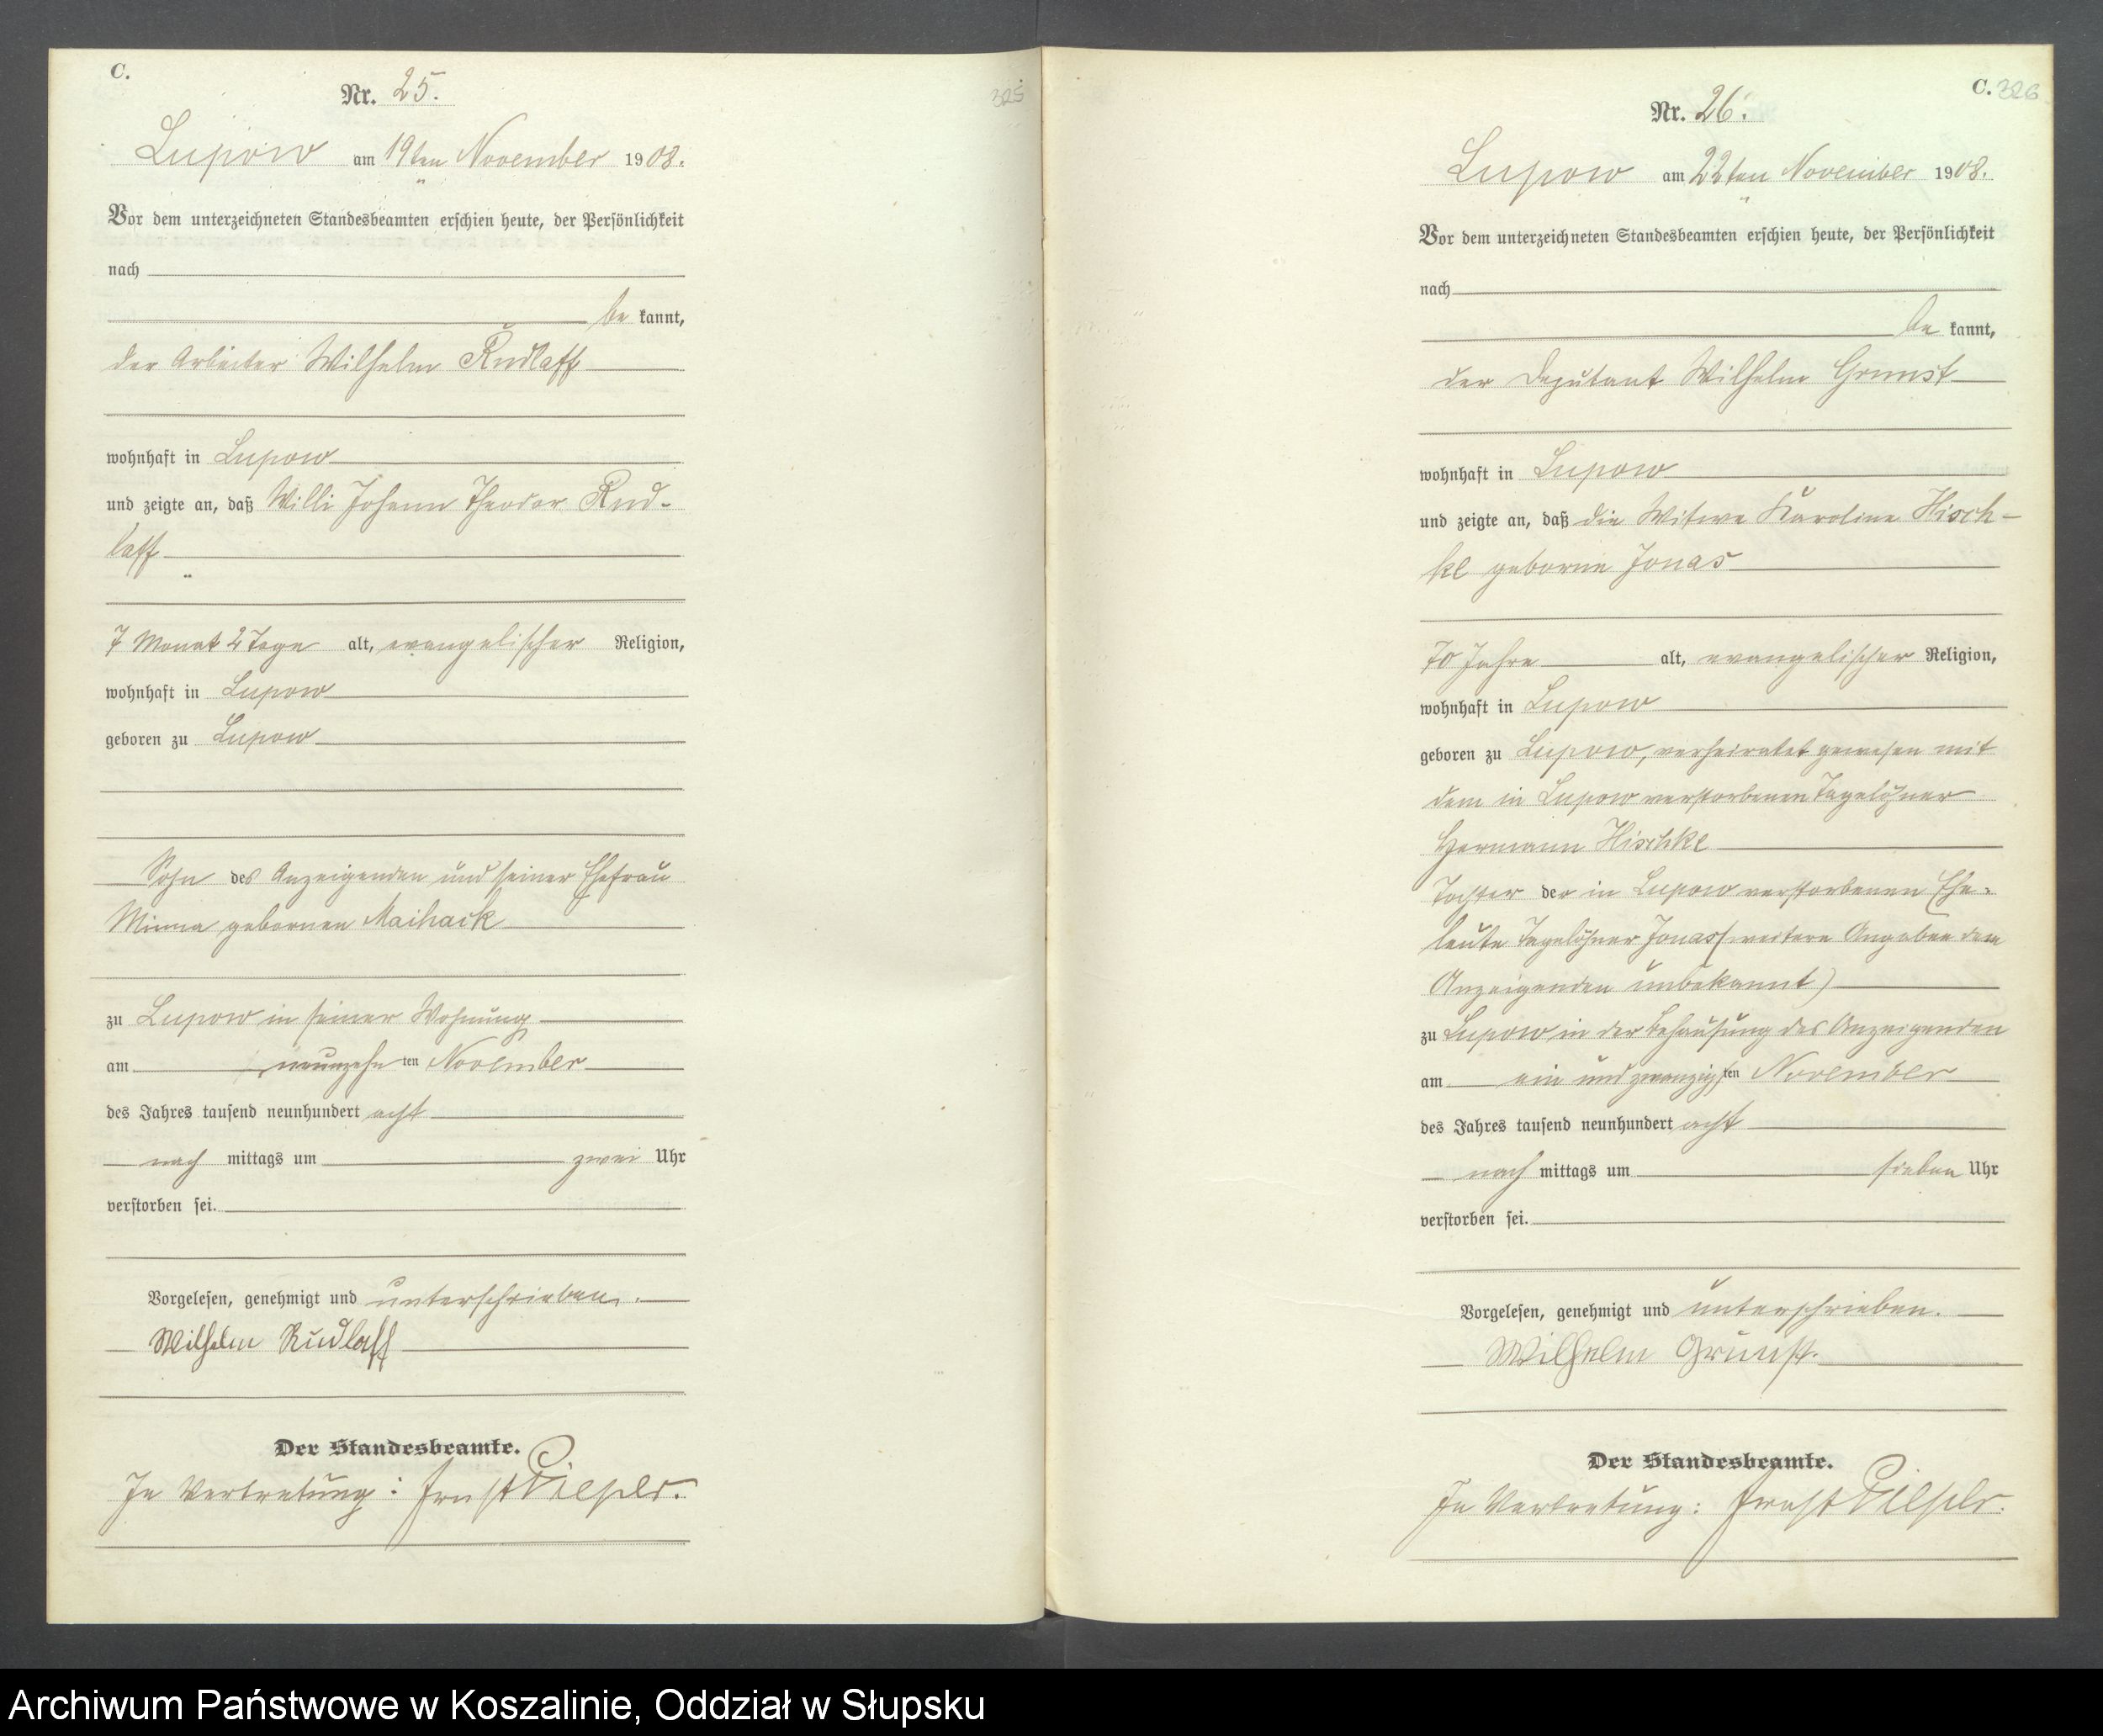 C.
Nr. 25.
325
Lupow am 19ten November 1908.
Vor dem unterzeichneten Standesbeamten erschien heute, der Persönlichkeit
nach
be kannt,
der Arbeiter Wilhelm Rudlaff
wohnhaft in Lupow
und zeigte an, daß Willi Johann Theodor Rud-
laff
7 Monat 2 Tage alt, evangelischer Religion,
wohnhaft in Lupow
geboren zu Lupow
Sohn des Anzeigenden und seiner Ehefrau
Minna gebornen Maihack
zu Lupow in seiner Wohnung
am neunzehn ten November
des Jahres tausend neunhundert acht
nach mittags um zwei Uhr
verstorben sei.
Vorgelesen, genehmigt und unterschrieben.
Wilhelm Rudlaff
Der Standesbeamte.
In Vertretung: Ernst
C. 326
Nr. 26.
Lupow am 22ten November 1908.
Vor dem unterzeichneten Standesbeamten erschien heute, der Persönlichkeit
nach
be kannt,
der Deputant Wilhelm Grunst
wohnhaft in Lupow
und zeigte an, daß die Witwe Karoline Hisch-
ke geborne Jonas
70 Jahre alt, evangelischer Religion,
wohnhaft in Lupow
geboren zu Lupow, verheiratet gewesen mit
dem in Lupow verstorbenen Tagelöhner
Hermann Hischke
Tochter der in Lupow verstorbenen Ehe-
leute Tagelöhner Jonas (weitere Angaben dem
Anzeigenden unbekannt)
zu Lupow in der Behausung des Anzeigenden
am ein und zwanzigsten November
des Jahres tausend neunhundert acht
nach mittags um sieben Uhr
verstorben sei.
Vorgelesen, genehmigt und unterschrieben.
Wilhelm Grunst.
Der Standesbeamte.
In Vertretung: Ernst
Archiwum Państwowe w Koszalinie, Oddział w Słupsku